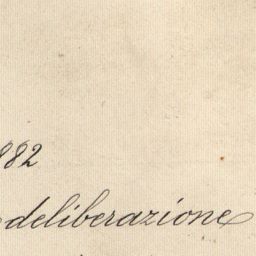 882
deliberazione